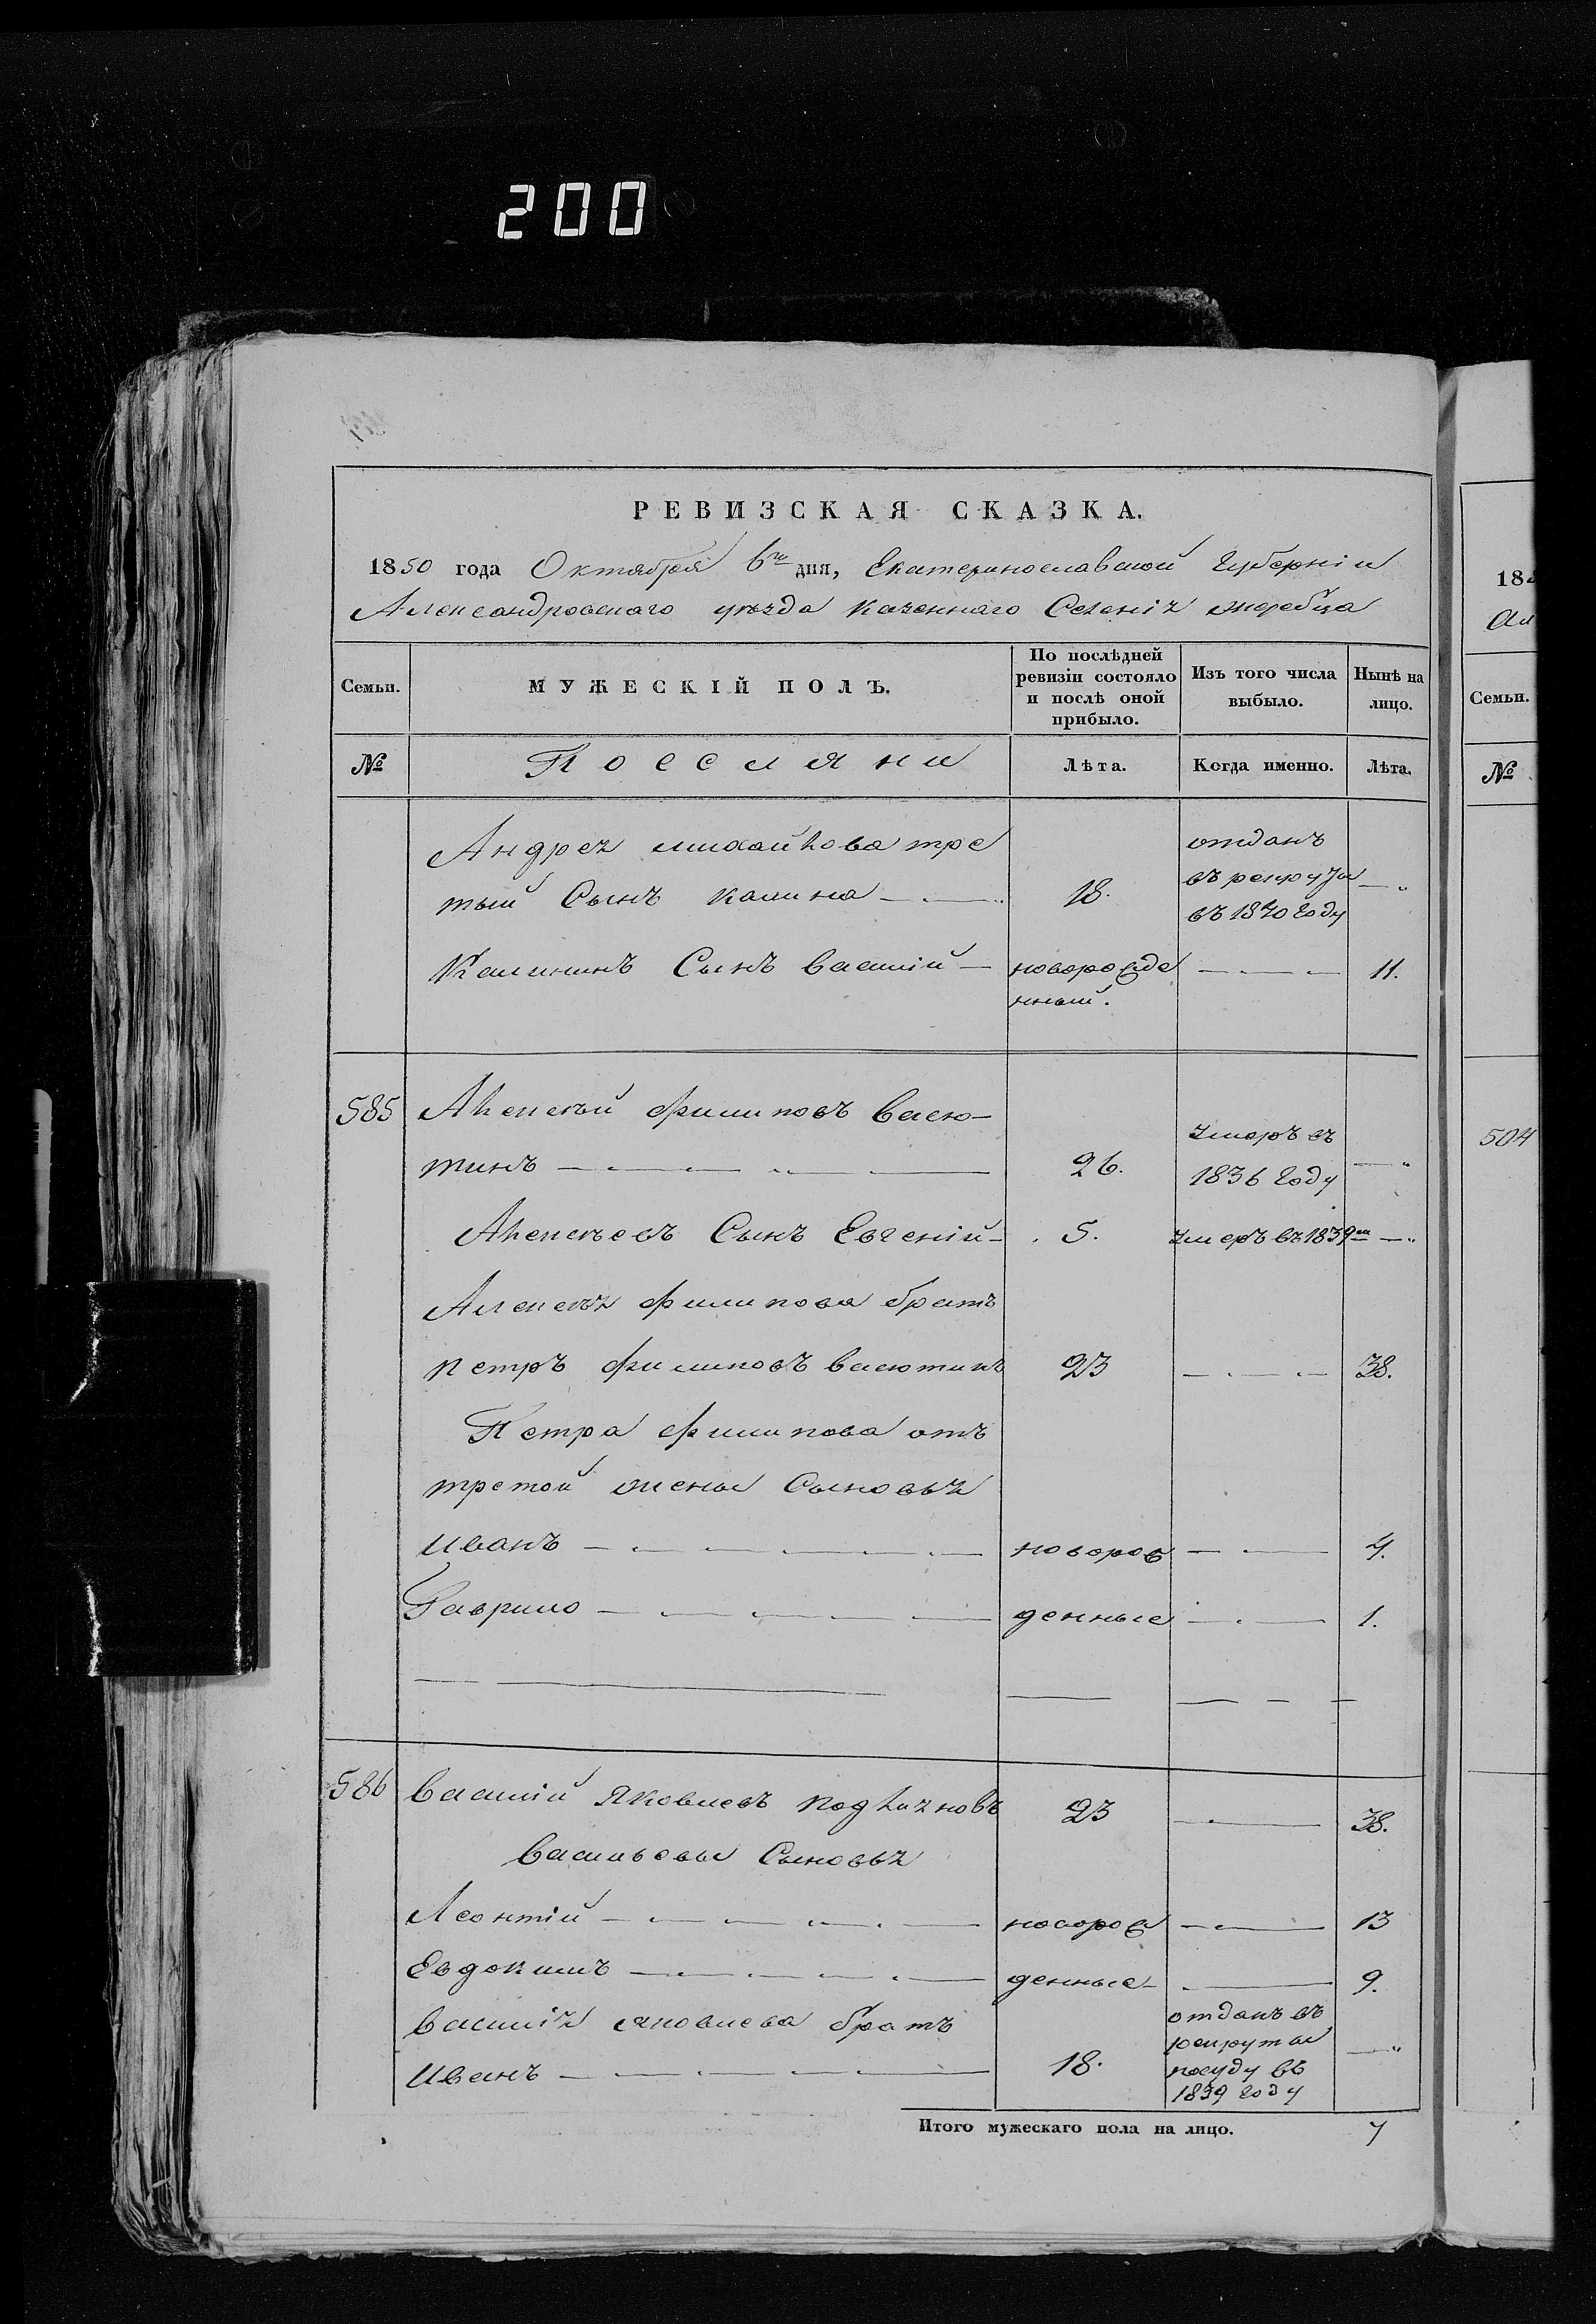 200
РЕВИЗСКАЯ СКАЗКА.
1850 года Октября 6го дня, Екатеринославской Губерніи
Александровскаго уѣзда казеннаго Селенія жеребца
Семьи. МУЖЕСКІЙ ПОЛЪ. По послѣдней ревизіи состояло и послѣ оной прибыло. Изъ того числа выбыло. Нынѣ на лицо.
№ Поселяни Лѣта. Когда именно. Лѣта.
Андрея михайлова тре
тый Сынъ калина 18. отданъ въ рекруты въ 1840 Году
Калининъ Сынъ василій новорожде нный. 11.
585 Алексѣй филиповъ васю-
тинъ 26. умеръ въ 1836 Году
Алексѣевъ Сынъ Евгеній 5. умеръ въ 1839м
Алексѣя филипова братъ
петръ филиповъ васютинъ 23 38.
Петра филипова отъ
третой жены Сыновья
иванъ новорож 4.
Гаврило денные 1.
586 василій яковлевъ подлизновъ 23 38.
васильевы Сыновья
Леонтій новорож 13
Евдокимъ денные 9.
василія яковлева братъ
иванъ 18. отданъ въ рекруты посуду въ 1839 Году
Итого мужескаго пола на лицо. 7
18
Ал
Семьи.
№
504